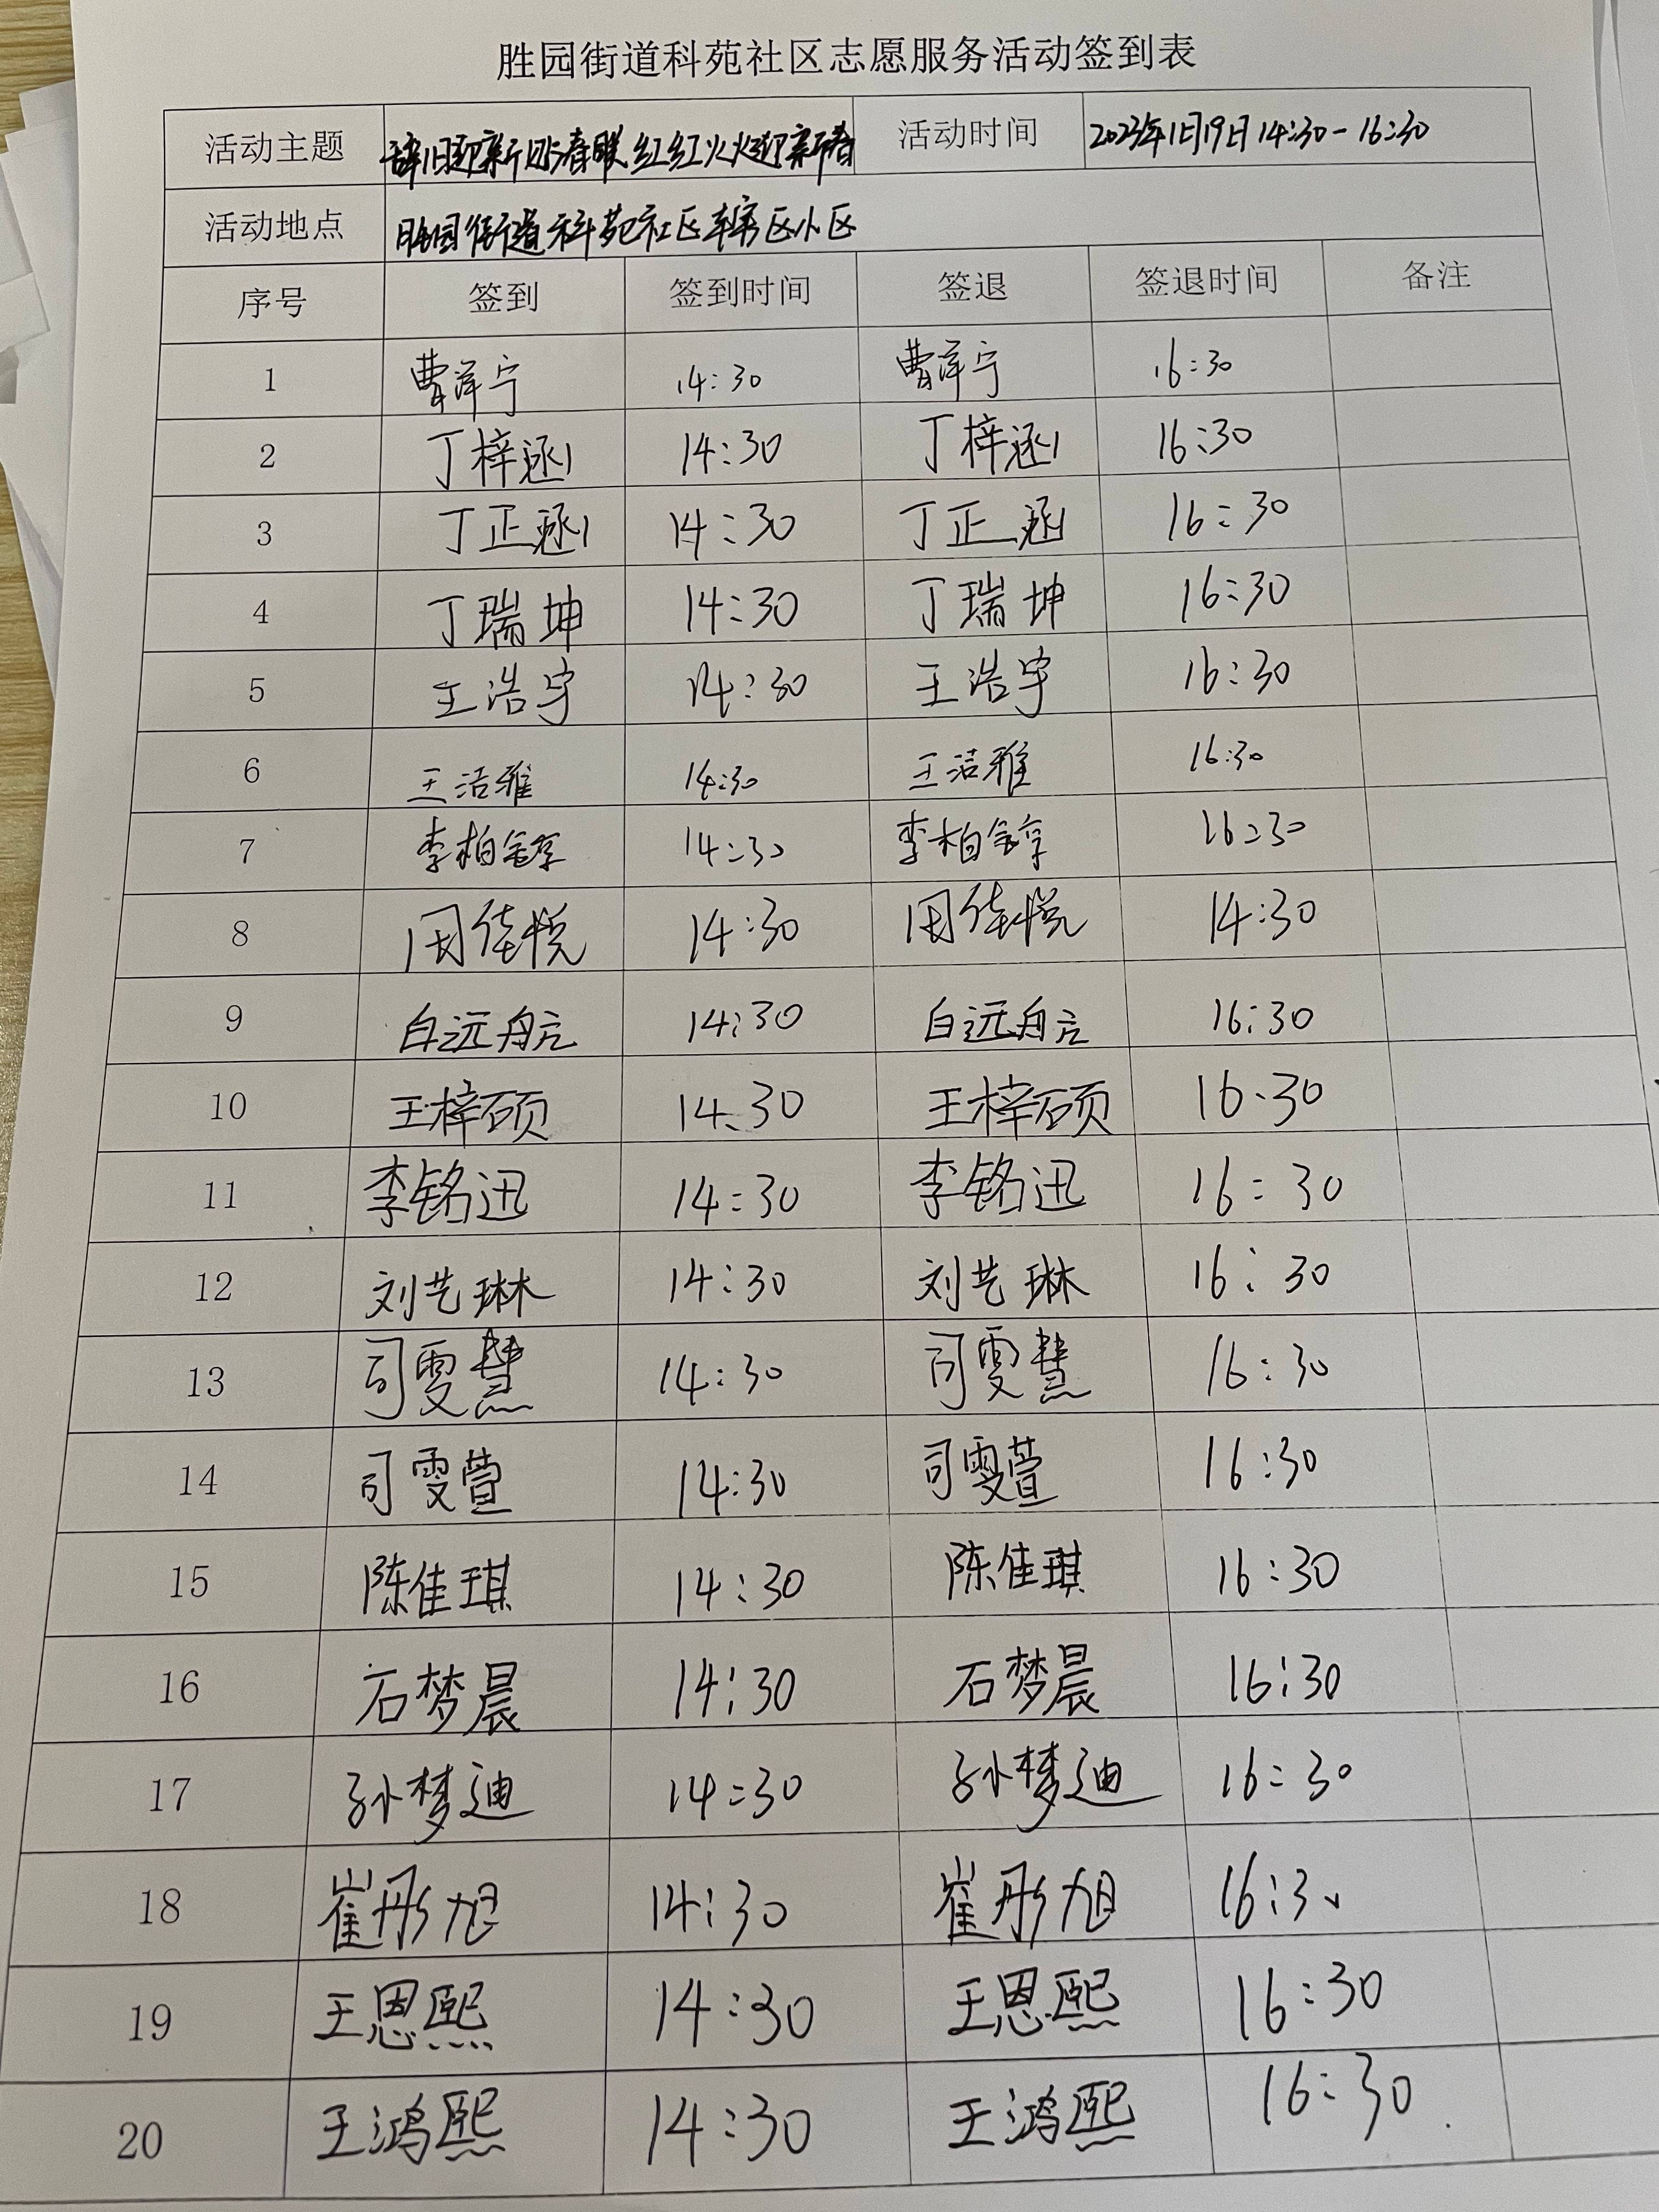 胜园街道科苑社区志愿服务活动签到表
活动主题 辞旧迎新贴春联 红红火火迎新春 活动时间 2023年1月19日 14:30-16:30
活动地点 胜园街道科苑社区辖区小区
序号 签到 签到时间 签退 签退时间 备注
1 曹泽宁 14:30 曹泽宁 16:30
2 丁梓涵 14:30 丁梓涵 16:30
3 丁正涵 14:30 丁正涵 16:30
4 丁瑞坤 14:30 丁瑞坤 16:30
5 王浩宇 14:30 王浩宇 16:30
6 王洁雅 14:30 王洁雅 16:30
7 李柏錞 14:30 李柏錞 16:30
8 周佳悦 14:30 周佳悦 14:30
9 白远航 14:30 白远航 16:30
10 王梓硕 14:30 王梓硕 16:30
11 李铭迅 14:30 李铭迅 16:30
12 刘艺琳 14:30 刘艺琳 16:30
13 司雯慧 14:30 司雯慧 16:30
14 司雯萱 14:30 司雯萱 16:30
15 陈佳琪 14:30 陈佳琪 16:30
16 石梦晨 14:30 石梦晨 16:30
17 孙梦迪 14:30 孙梦迪 16:30
18 崔彤旭 14:30 崔彤旭 16:30
19 王恩熙 14:30 王恩熙 16:30
20 王鸿熙 14:30 王鸿熙 16:30